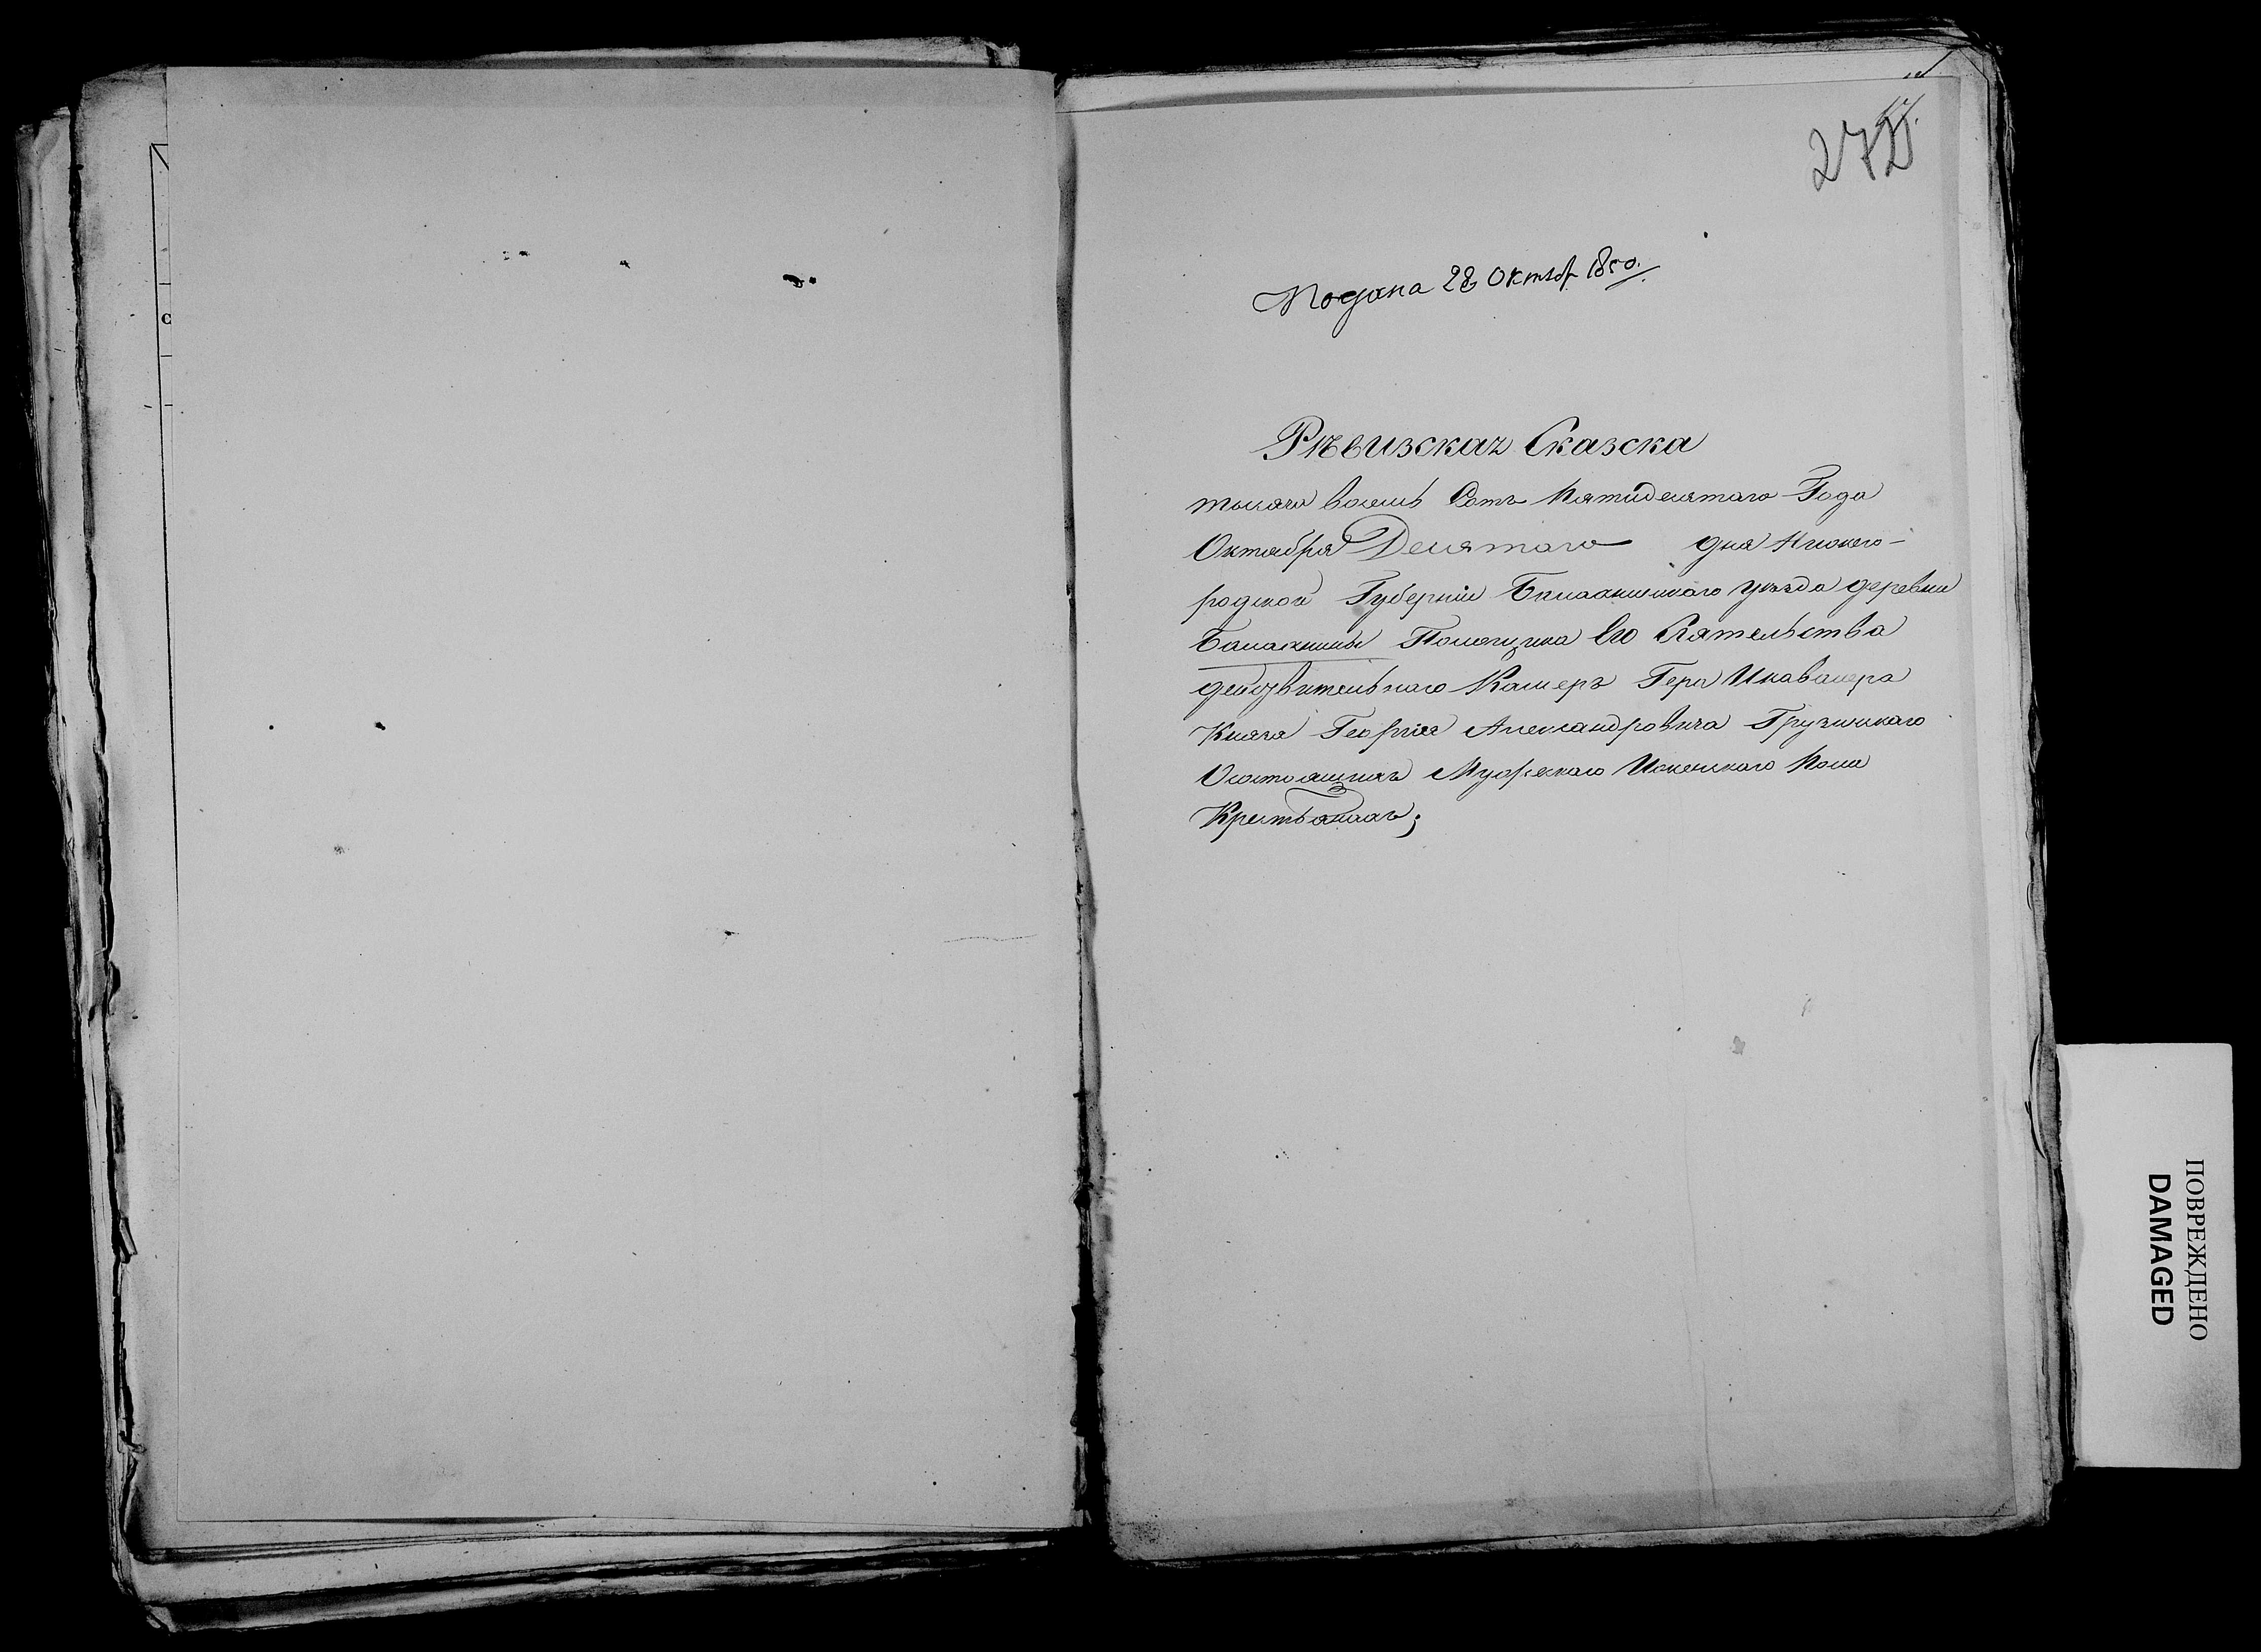 272
Подана 28 Октяб. 1850.
Рѣвизская Сказска
тысяча восемь Сотъ Пятидесятаго Года
Октября Десятаго дня Нижего-
родской Губерніи Балахнинскаго уѣзда деревни
Помещика Его Сиятельства
действительнаго Камеръ Гера Икавалера
Князя Георгия Александровича Грузинскаго
Осостоящихъ Мужескаго Иженскаго Пола
Крестьянахъ;
ПОВРЕЖДЕНО
DAMAGED